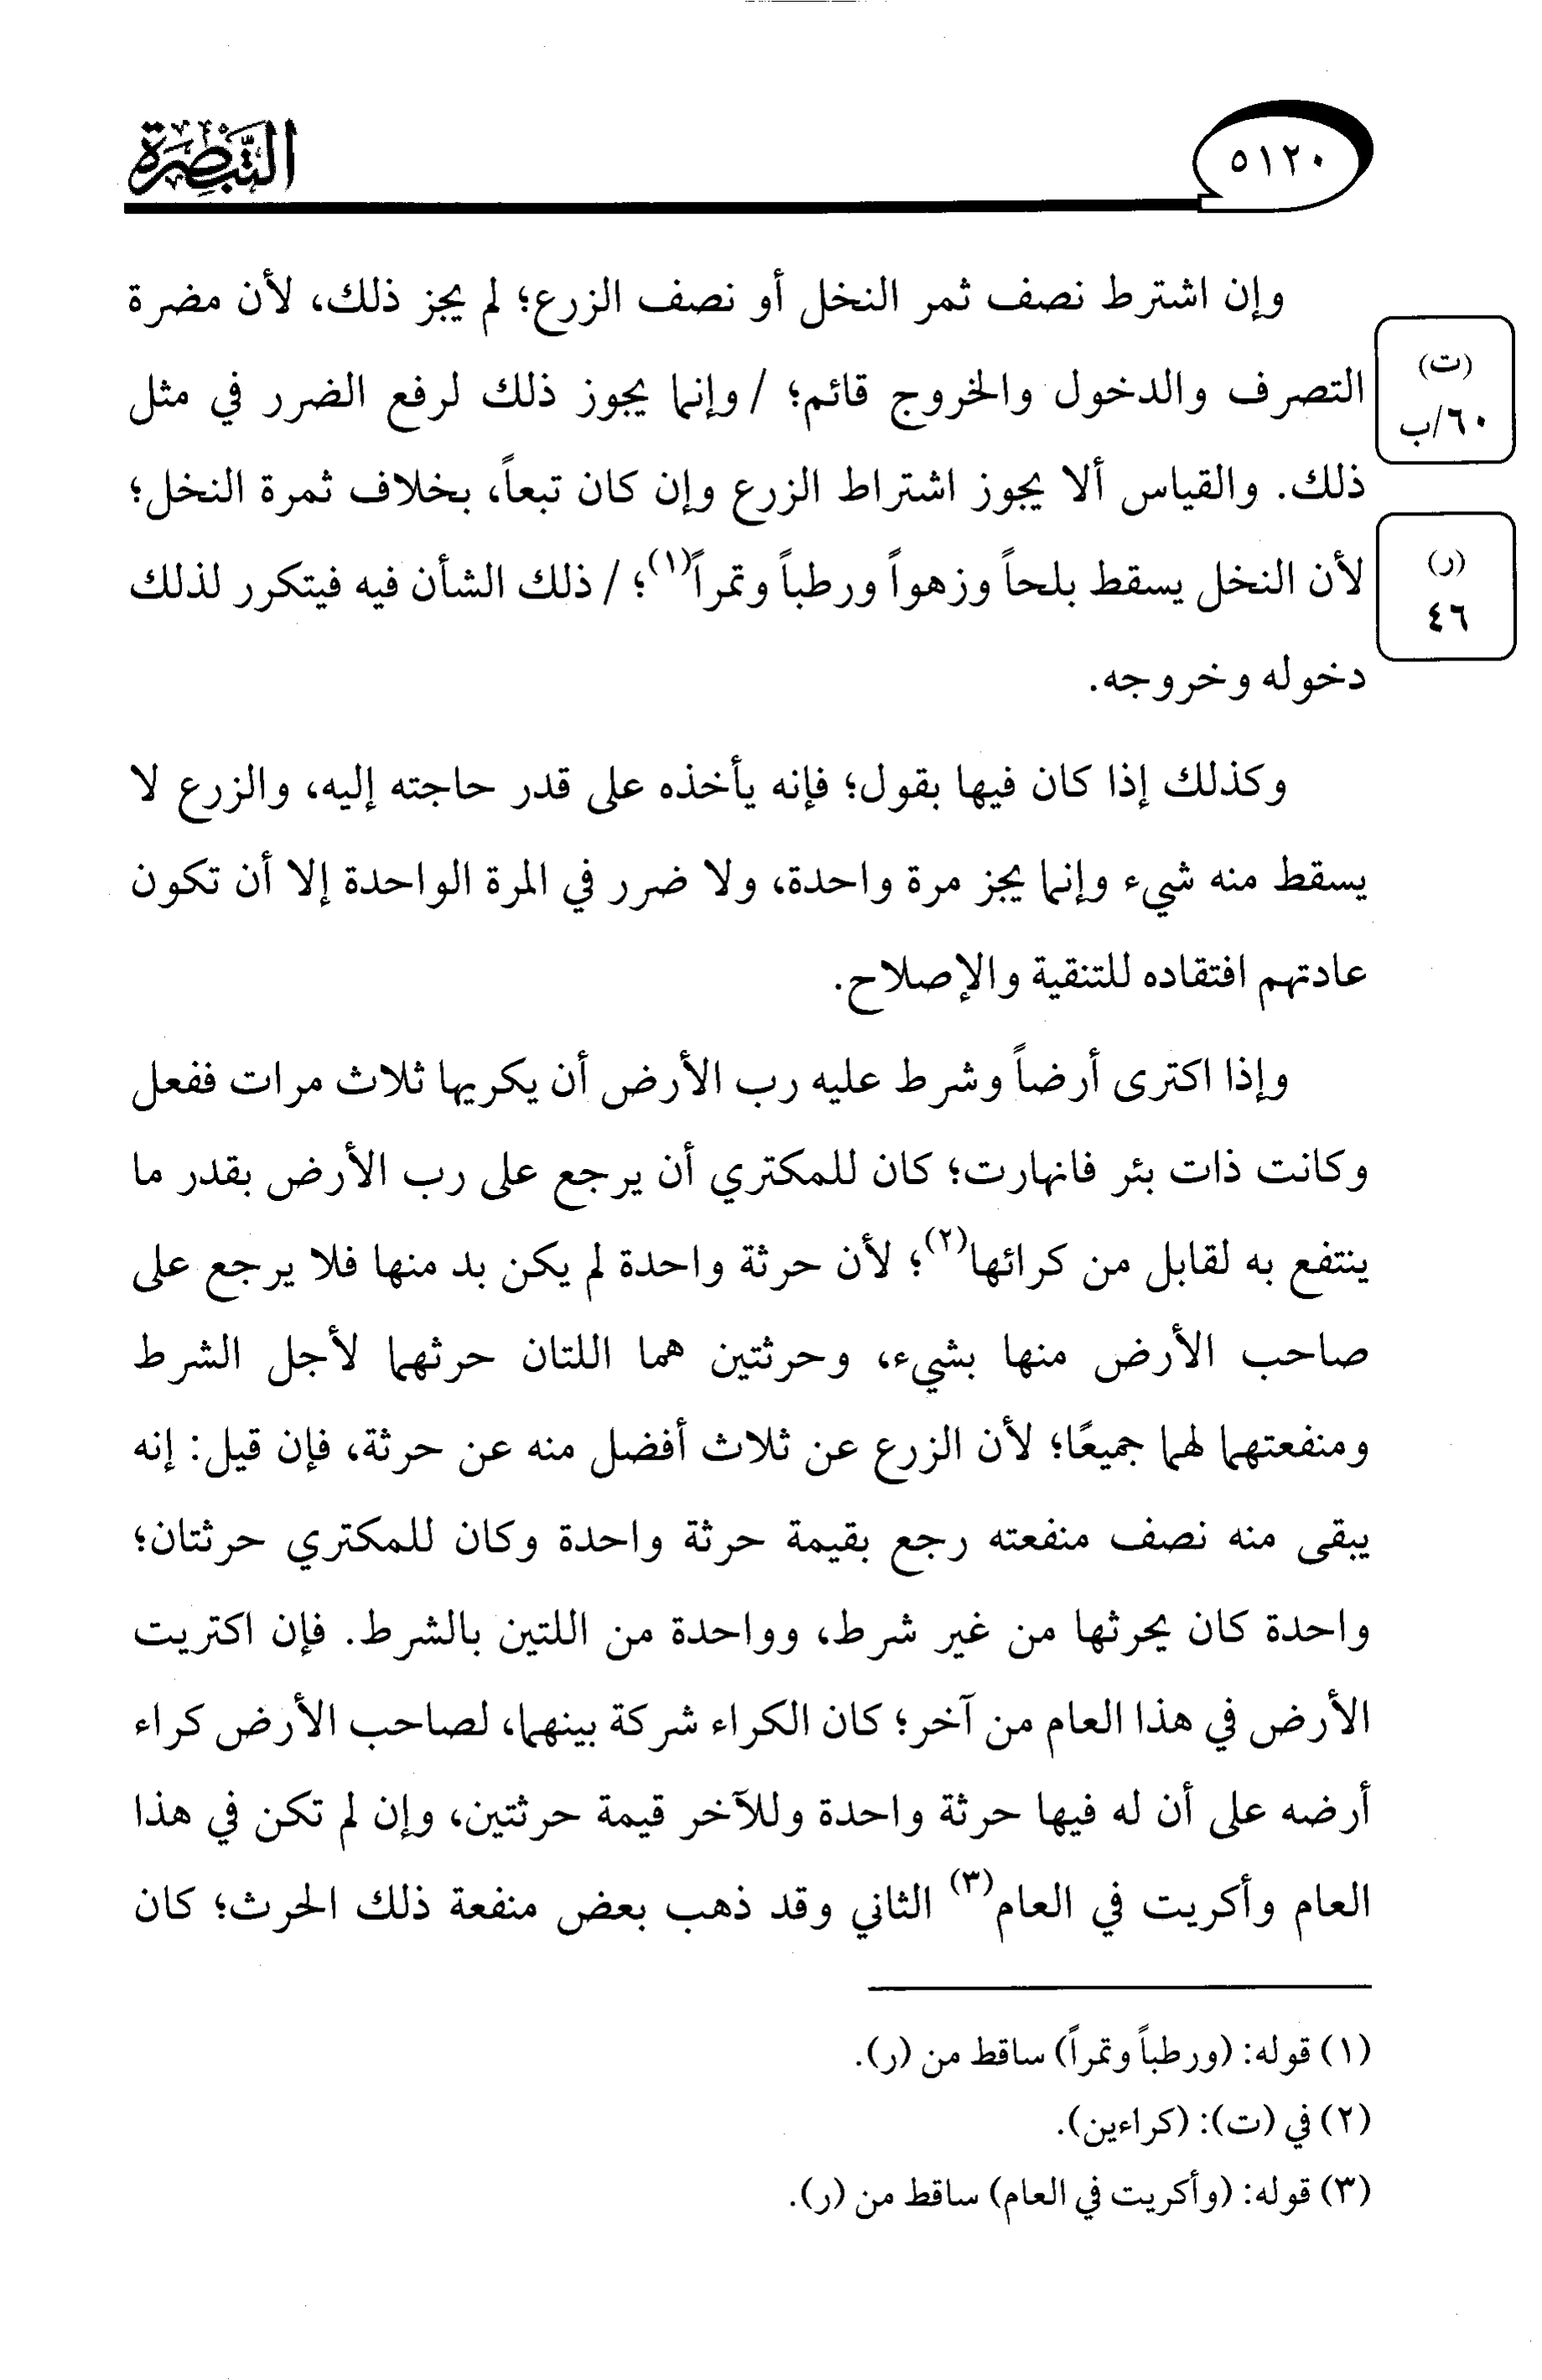 ٥١٢٠
التبصرة
وإن اشترط نصف ثمر النخل أو نصف الزرع؛ لم يجز ذلك، لأن مضرة
التصرف والدخول والخروج قائم؛ / وإنما يجوز ذلك لرفع الضرر في مثل
(ت)
٦٠/ب
ذلك. والقياس ألا يجوز اشتراط الزرع وإن كان تبعاً، بخلاف ثمرة النخل؛
لأن النخل يسقط بلحاً وزهواً ورطباً وتمراً(١)؛ / ذلك الشأن فيه فيتكرر لذلك
(ر)
٤٦
دخوله وخروجه.
وكذلك إذا كان فيها بقول؛ فإنه يأخذه على قدر حاجته إليه، والزرع لا
يسقط منه شيء وإنما يجز مرة واحدة، ولا ضرر في المرة الواحدة إلا أن تكون
عادتهم افتقاده للتنقية والإصلاح.
وإذا اكترى أرضاً وشرط عليه رب الأرض أن يكريها ثلاث مرات ففعل
وكانت ذات بئر فانهارت؛ كان للمكتري أن يرجع على رب الأرض بقدر ما
ينتفع به لقابل من كرائها(٢)؛ لأن حرثة واحدة لم يكن بد منها فلا يرجع على
صاحب الأرض منها بشيء، وحرثتين هما اللتان حرثهما لأجل الشرط
ومنفعتهما لهما جميعًا؛ لأن الزرع عن ثلاث أفضل منه عن حرثة، فإن قيل: إنه
يبقى منه نصف منفعته رجع بقيمة حرثة واحدة وكان للمكتري حرثتان؛
واحدة كان يحرثها من غير شرط، وواحدة من اللتين بالشرط. فإن اكتريت
الأرض في هذا العام من آخر؛ كان الكراء شركة بينهما، لصاحب الأرض كراء
أرضه على أن له فيها حرثة واحدة وللآخر قيمة حرثتين، وإن لم تكن في هذا
العام وأكريت في العام(٣) الثاني وقد ذهب بعض منفعة ذلك الحرث؛ كان
(١) قوله: (ورطباً وتمراً) ساقط من (ر).
(٢) في (ت): (كراءين).
(٣) قوله: (وأكريت في العام) ساقط من (ر).